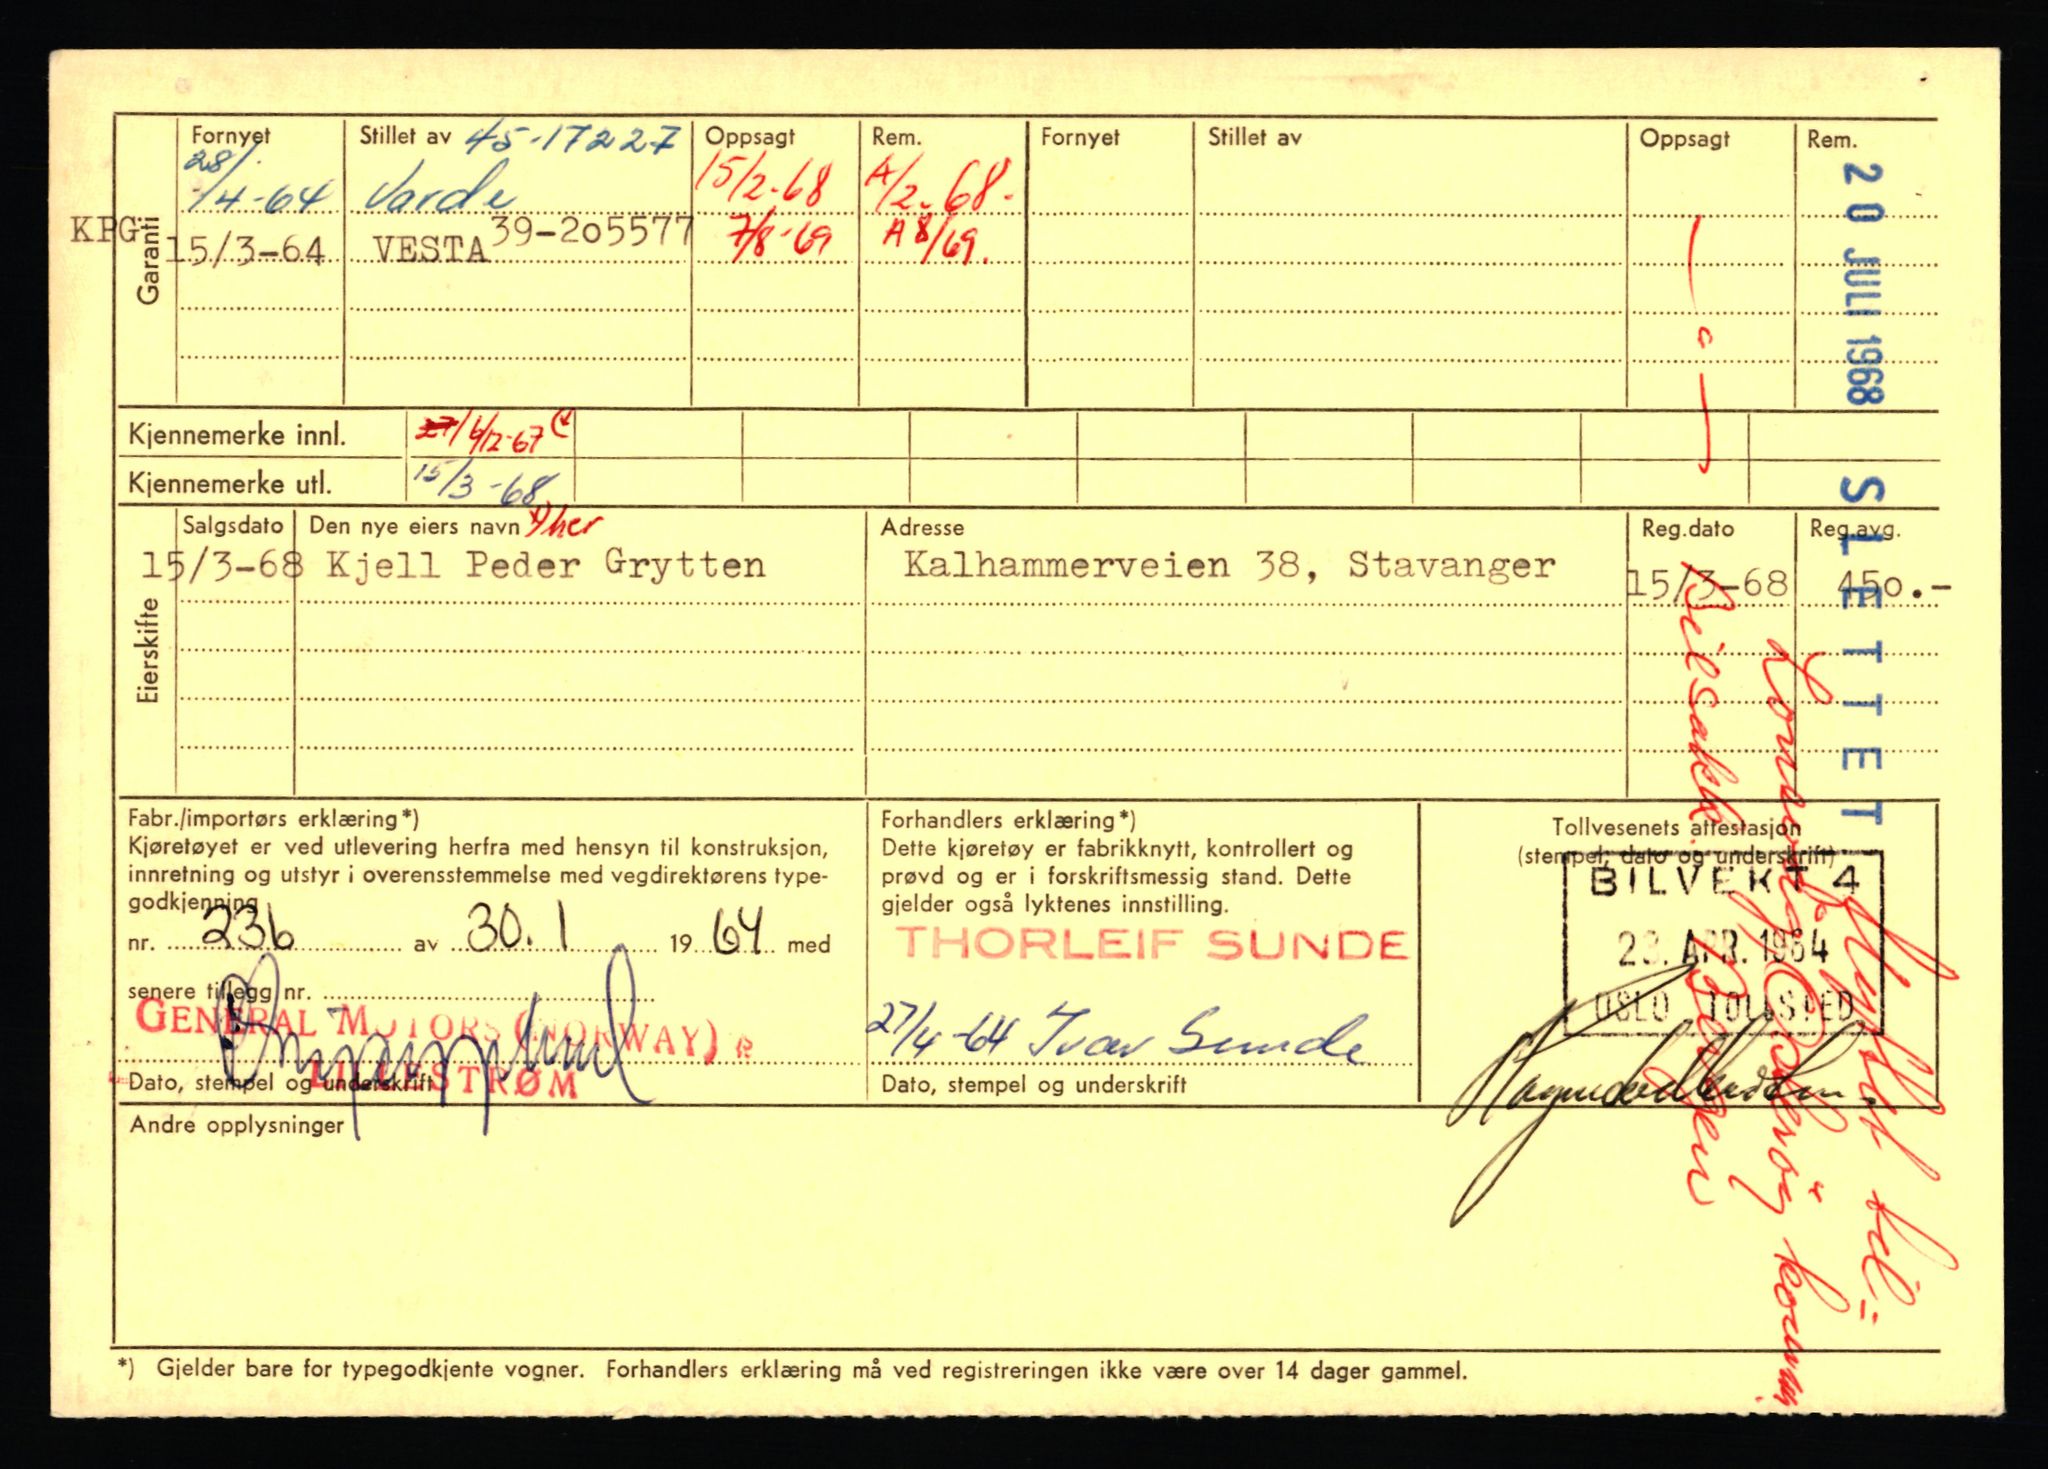 Fornyet Stillet av 45-17227 Oppsagt Rem. Fornyet Stillet av Oppsagt Rem.
28/4-64 Varde 15/2-68 A/2-68-
KPG 15/3-64 VESTA 39-205577 7/8-69 A 8/69.
Garanti
20 JULI 1968
SLETTET
Kjennemerke innl. 6/12-67
Kjennemerke utl. 15/3-68
Salgsdato Den nye eiers navn her Adresse Reg.dato Reg.avg.
15/3-68 Kjell Peder Grytten Kalhammerveien 38, Stavanger 15/3-68 450.-
Eierskifte
Fabr./importørs erklæring*)
Kjøretøyet er ved utlevering herfra med hensyn til konstruksjon,
innretning og utstyr i overensstemmelse med vegdirektørens type-
godkjenning
nr. 236 av 30.1 1964 med
senere tillegg nr.
GENERAL MOTORS (NORWAY)
LILLESTRØM
Dato, stempel og underskrift
Forhandlers erklæring*)
Dette kjøretøy er fabrikknytt, kontrollert og
prøvd og er i forskriftsmessig stand. Dette
gjelder også lyktenes innstilling.
THORLEIF SUNDE
27/4-64 Ivar Sunde
Dato, stempel og underskrift
Tollvesenets attestasjon
(stempel, dato og underskrift)
BILVEKT 4
23. APR. 1964
OSLO TOLLSTED
flyttet til =
Andre opplysninger
*) Gjelder bare for typegodkjente vogner. Forhandlers erklæring må ved registreringen ikke være over 14 dager gammel.